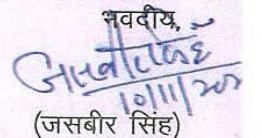 भवदीय,
जसबीर सिंह
10/11/20
(जसबीर सिंह)